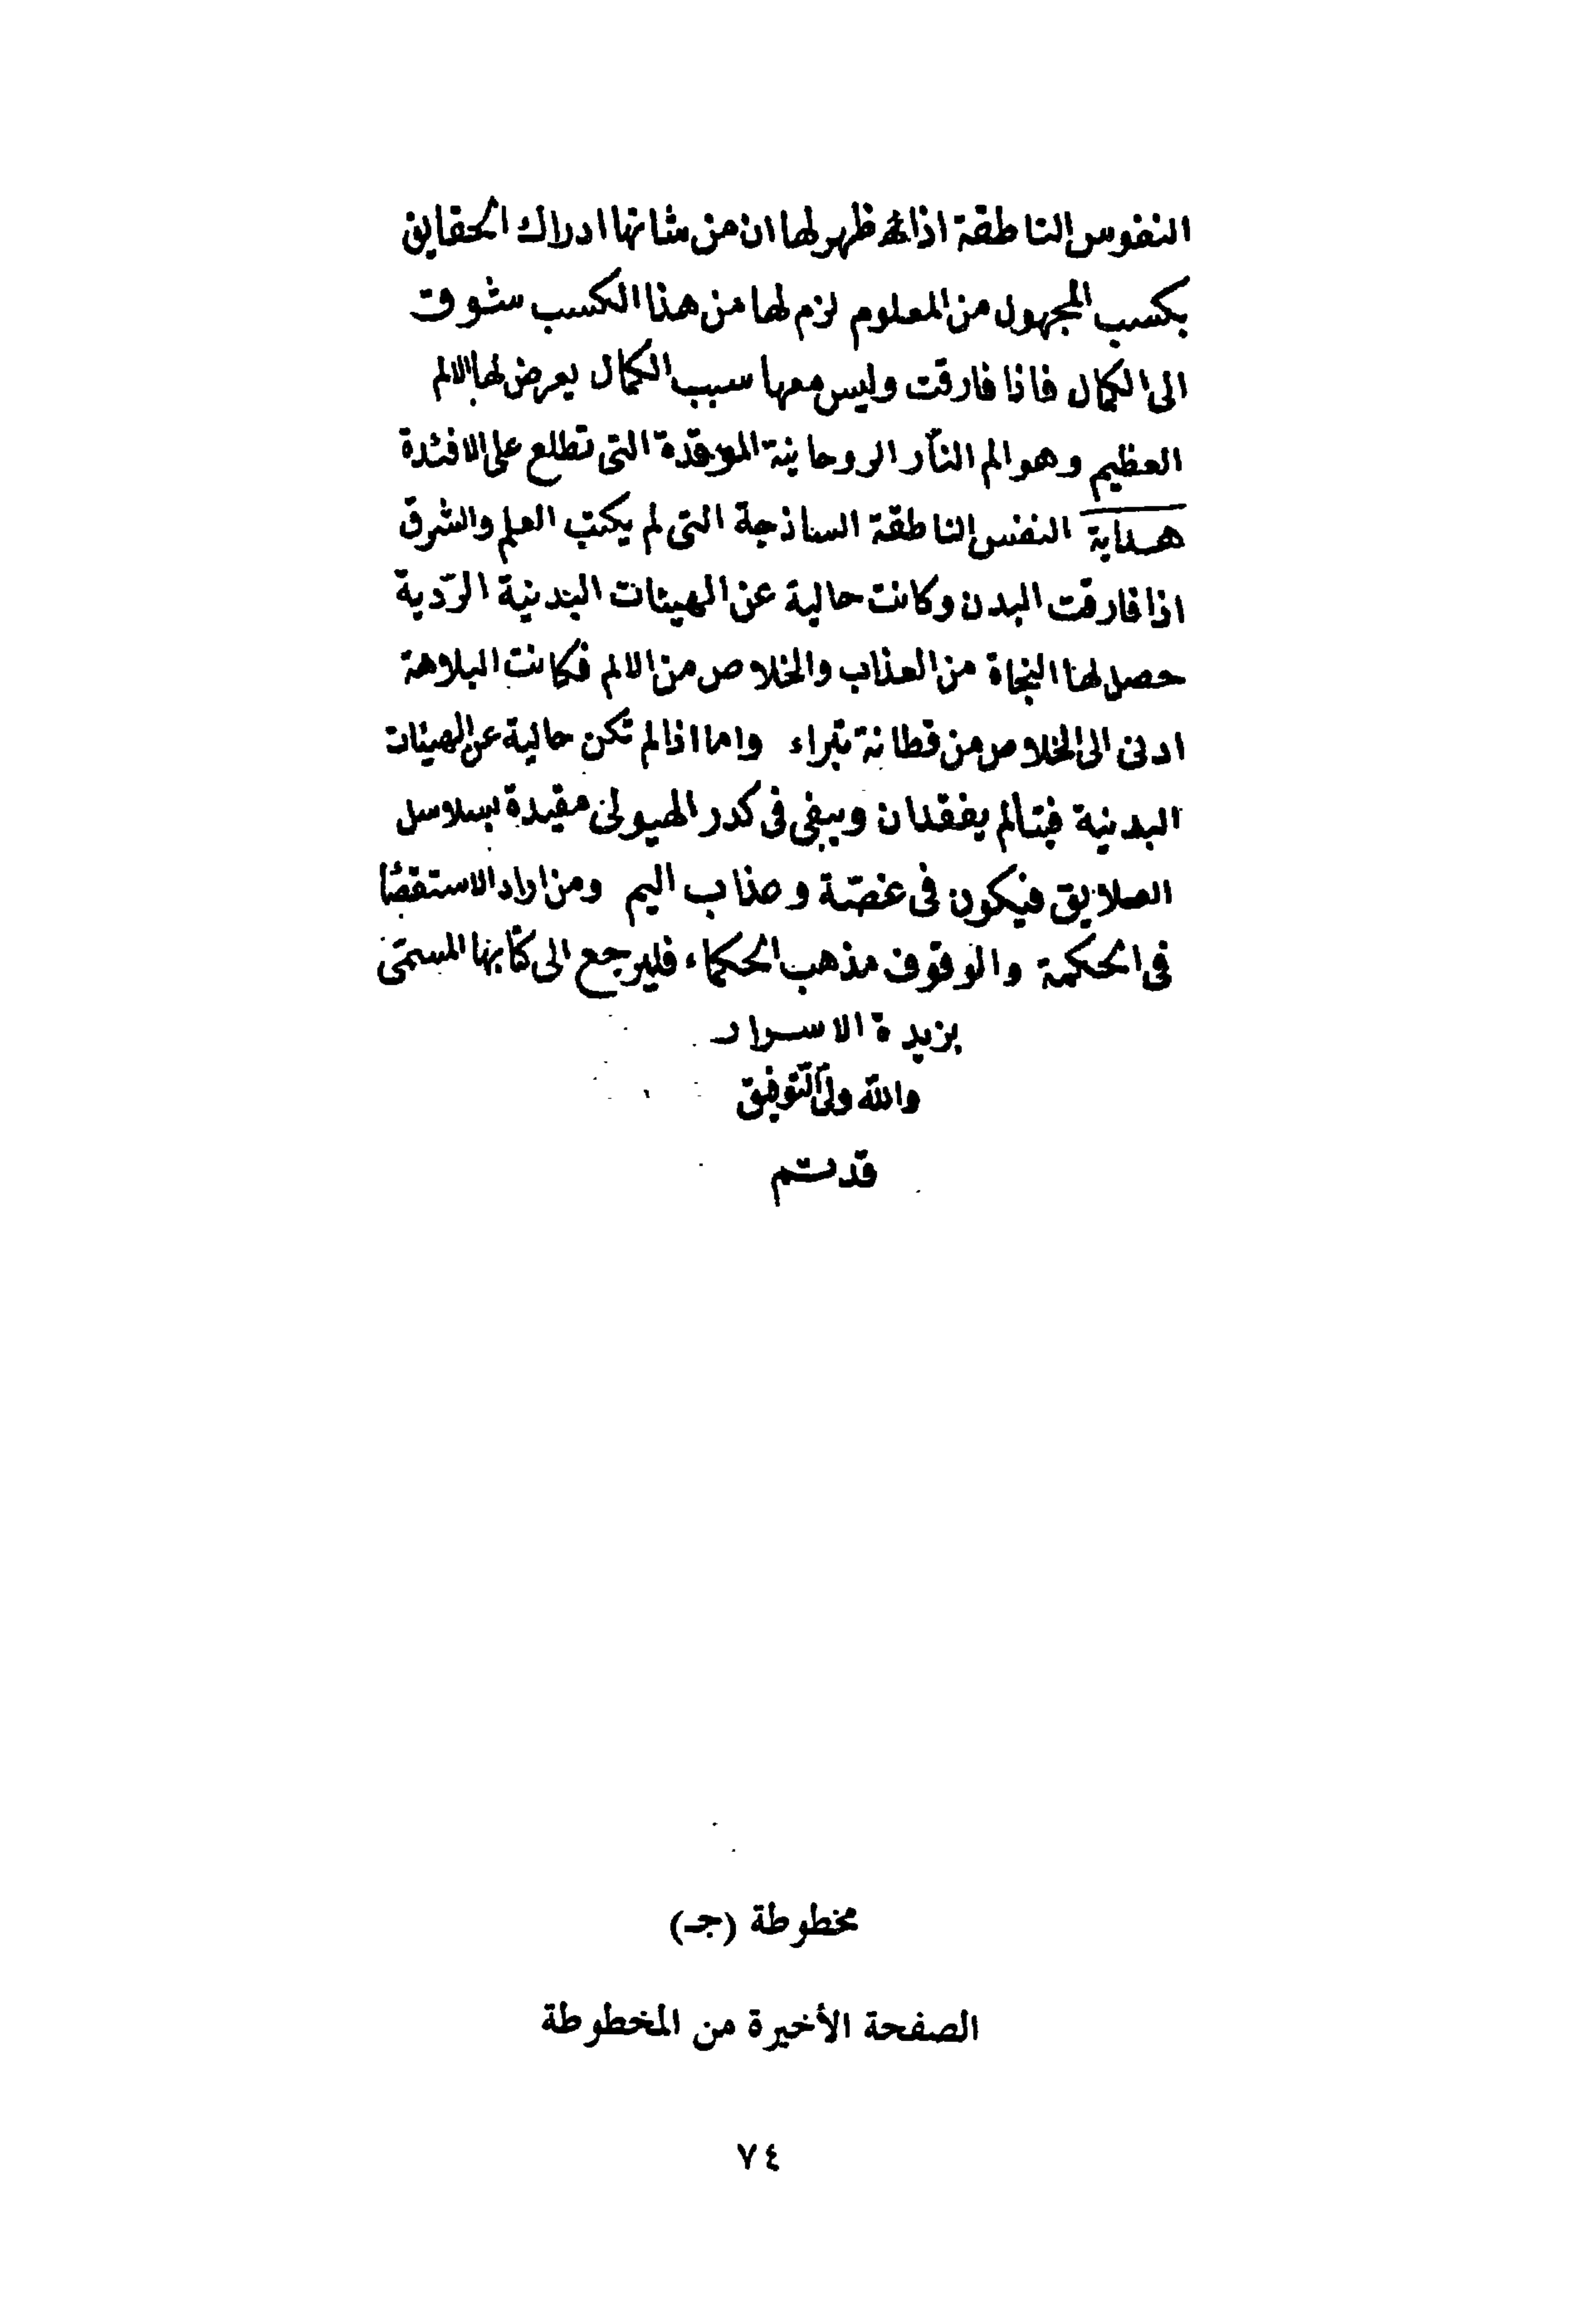 النفوس الناطقة اذا ظهر لها ان من شانها ادراك الحقايق
بكسب المجهول من المعلوم لزم لها من هذا الكسب شوق
الى الكمال فاذا فارقت وليس معها سبب الكمال يعرض لها الالم
العظيم وهو الم النار الروحانية الموقدة التى تطلع على الافئدة
هداية النفس الناطقة الساذجة التى لم يكتب العلم والشرق
اذا فارقت البدن وكانت خالية عن الهيئات البدنية الردّية
حصل لها النجاة من العذاب والخلاص من الالم فكانت البلاهة
ادنى الى الخلاص من فطانة بتراء واما اذا لم تكن خالية عن الهيئات
البدنية فيتالم بفقدان ويبقى فى كدر الهيولى مقيدة بسلاسل
العلايق فيكون فى غصّة وعذاب اليم ومن اراد الاستقصا
فى الحكمة والوقوف مذهب الحكماء فليرجع الى كتابها المسمّى
بزبدة الاسرار
والله ولى التوفيق
قد تم
مخطوطة (جـ)
الصفحة الأخيرة من المخطوطة
٧٤